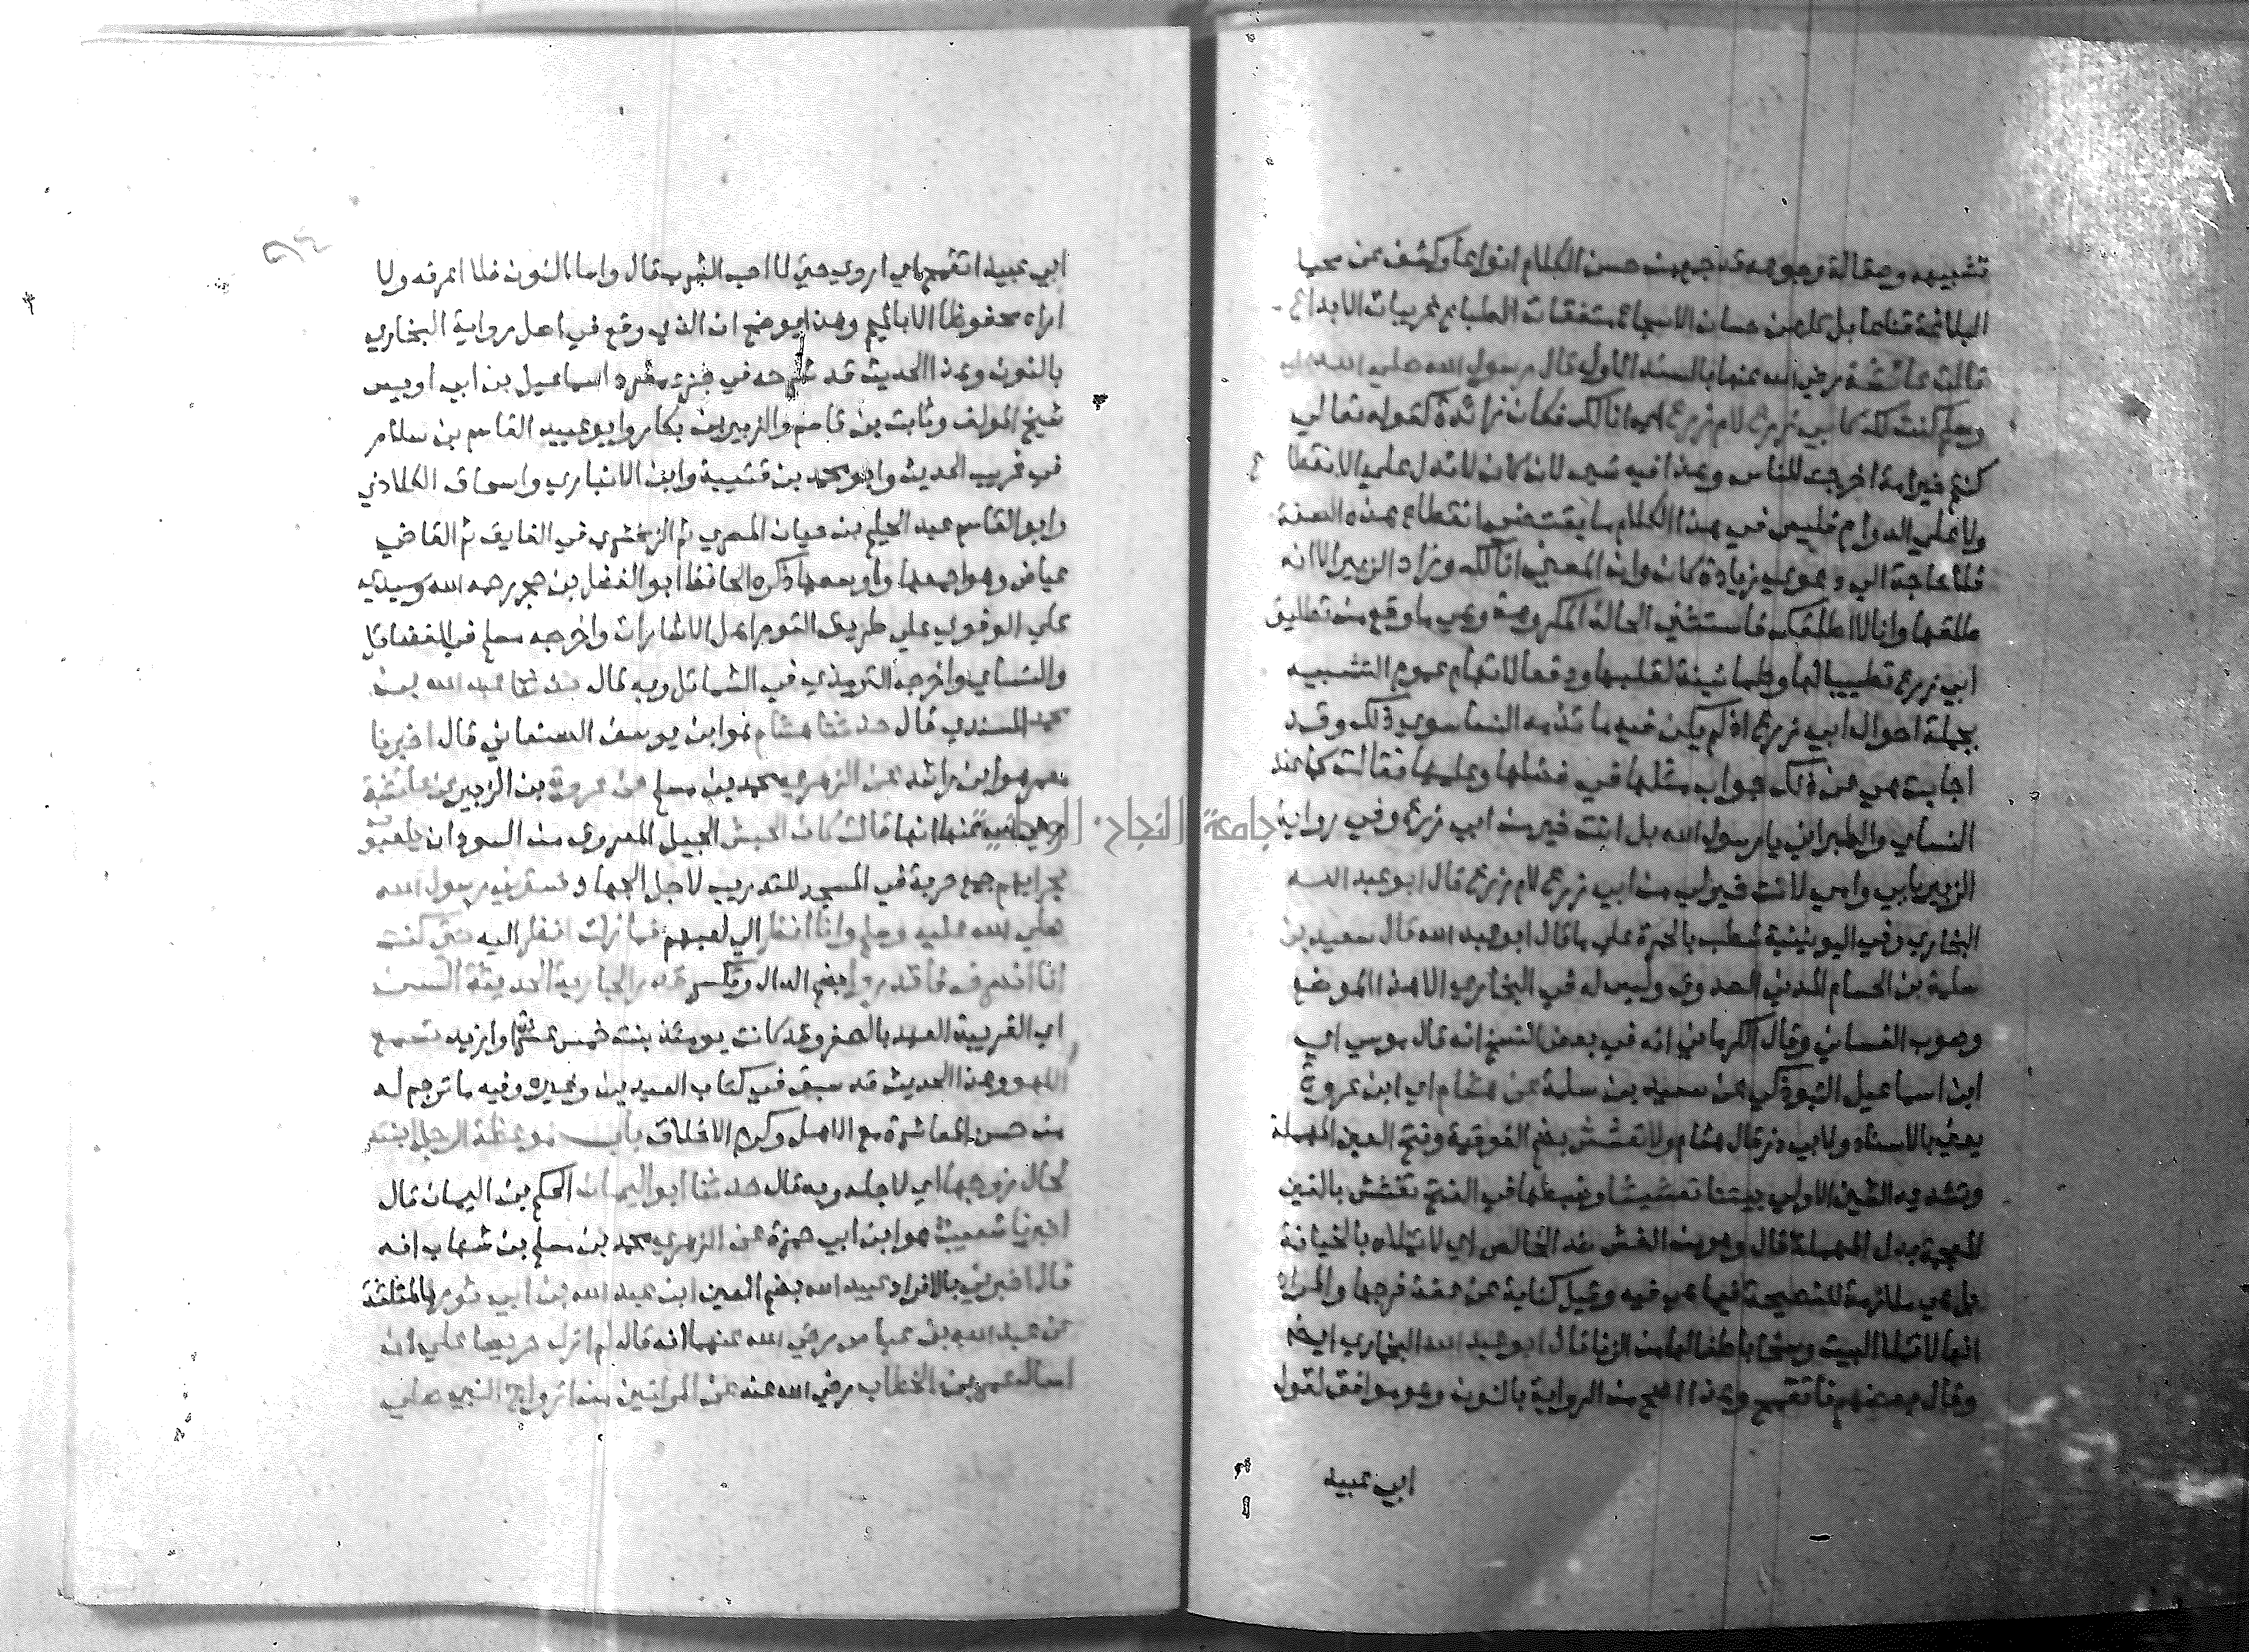 تشبيهه وصقالة وجوهه قد جمع من حسن الكلام انواعا وكشف عن محيا
البلاغة قناعا بل كلهن حسان الاسجاع متفقات الطباع غريبات الابداع
قالت عائشة رضي الله عنها بالسند الاول قال رسول الله صلي الله عليه
وسلم كنت لك كابي زرع لام زرع اي انا لك فكان زائدة كقوله تعالي
كنتم خير امة اخرجت للناس وهذا فيه شي لان كان لا تدل علي الانقطا
ولا علي الدوام فليس في هذا الكلام ما يقتضي انقطاع هذه الصفة
فلا حاجة الي دعوي زيادة كان وان المعني انا لك وزاد الزبير الا انه
طلقها وانا لا اطلقك فاستثني الحالة المكروهة وهي ما وقع من تطليق
ابي زرع تطييبا لها وطمانينة لقلبها ودفعا لايهام عموم التشبيه
بجملة احوال ابي زرع اذ لم يكن فيه ما تذمه النسا سوي ذلك وقد
اجابت هي عن ذلك جواب مثلها في فضلها وعلمها فقالت كما عند
النساي والطبراني يا رسول الله بل انت خير من ابي زرع وفي رواية
الزبير بابي وامي لانت خير لي من ابي زرع لام زرع قال ابو عبد الله
البخاري وفي اليونينية شطب بالحمرة علي ما قال ابو عبد الله قال سعيد بن
سلمة بن الحسام المديني الصدوق وليس له في البخاري الا هذا الموضع
وصوب الغساني وقال الكرماني انه في بعض النسخ انه قال موسي اي
ابن اسماعيل التبوذكي عن سعيد بن سلمة عن هشام اي ابن عروة
يعني بالاسناد ولابي ذر قال هشام ولا تعشش بضم الفوقية وفتح العين المهملة
وتشديد الشين الاولي بيتنا تعشيشا وضبطها في الفتح تغشش بالغين
المعجمة بدل المهملة قال وهو من الغش ضد الخالص اي لا تملاه بالخيانة
بل هي ملازمة للنصيحة فيما هي فيه وقيل كناية عن عفة فرجها والمراد
انها لا تملا البيت وسخا باطفالها من الزنا قال ابو عبد الله البخاري ايضا
وقال بعضهم فاتقمح وهذا اصح من الرواية بالنون وهو موافق لقول
ابي عبيد
ابي عبيد اتقمح اي اروي حتي لا احب الشرب قال واما بالنون فلا اعرفه ولا
اراه محفوظا الا بالميم وهذا يوضح ان الذي وقع في اصل رواية البخاري
بالنون وهذا الحديث قد شرحه في جزء مفرد اسماعيل بن ابي اويس
شيخ المولف وثابت بن قاسم والزبير بن بكار وابو عبيد القاسم بن سلام
في غريب الحديث وابو محمد بن قتيبة وابن الانباري واسحاق الكلاذي
وابو القاسم عبد الحليم بن حيان المصري ثم الزمخشري في الفايق ثم القاضي
عياض وهو اجمعها واوسعها ذكره الحافظ ابو الفضل بن حجر رحمه الله وسيدي
علي الوفوي علي طريق القوم اهل الاشارات واخرجه مسلم في الفضائل
والنساي واخرجه الترمذي في الشمائل وبه قال حدثنا عبد الله بن
محمد المسندي قال حدثنا هشام هو ابن يوسف الصنعاني قال اخبرنا
معمر هو ابن راشد عن الزهري محمد بن مسلم عن عروة بن الزبير عن عائشة
رضي الله عنها انها قالت كان الحبش الجيل المعروف من السودان يلعبو
بحرابهم جمع حربة في المسجد للتدريب لاجل الجهاد فسترني رسول الله
صلي الله عليه وسلم وانا انظر الي لعبهم فما زلت انظر اليه حتي كنت
انا انصرف فاقدروا بضم الدال وتكسر قدر الجارية الحديثة السن
اي القريبة العهد بالصغر وقد كانت يومئذ بنت خمس عشرة او ازيد تسمع
اللهو وهذا الحديث قد سبق في كتاب العيدين وغيره وفيه ما ترجم له
من حسن المعاشرة مع الاهل وكرم الاخلاق باب موعظة الرجل ابنته
لحال زوجها اي لاجله وبه قال حدثنا ابو اليمان الحكم بن اليمان قال
اخبرنا شعيب هو ابن ابي حمزة عن الزهري محمد بن مسلم بن شهاب انه
قال اخبرني بالافراد عبيد الله بضم العين ابن عبد الله بن ابي ثور بالمثلثة
عن عبد الله بن عباس رضي الله عنهما انه قال لم ازل حريصا علي ان
اسال عمر بن الخطاب رضي الله عنه عن المراتين من ازواج النبي صلي
جامعة النجاح الوطنية